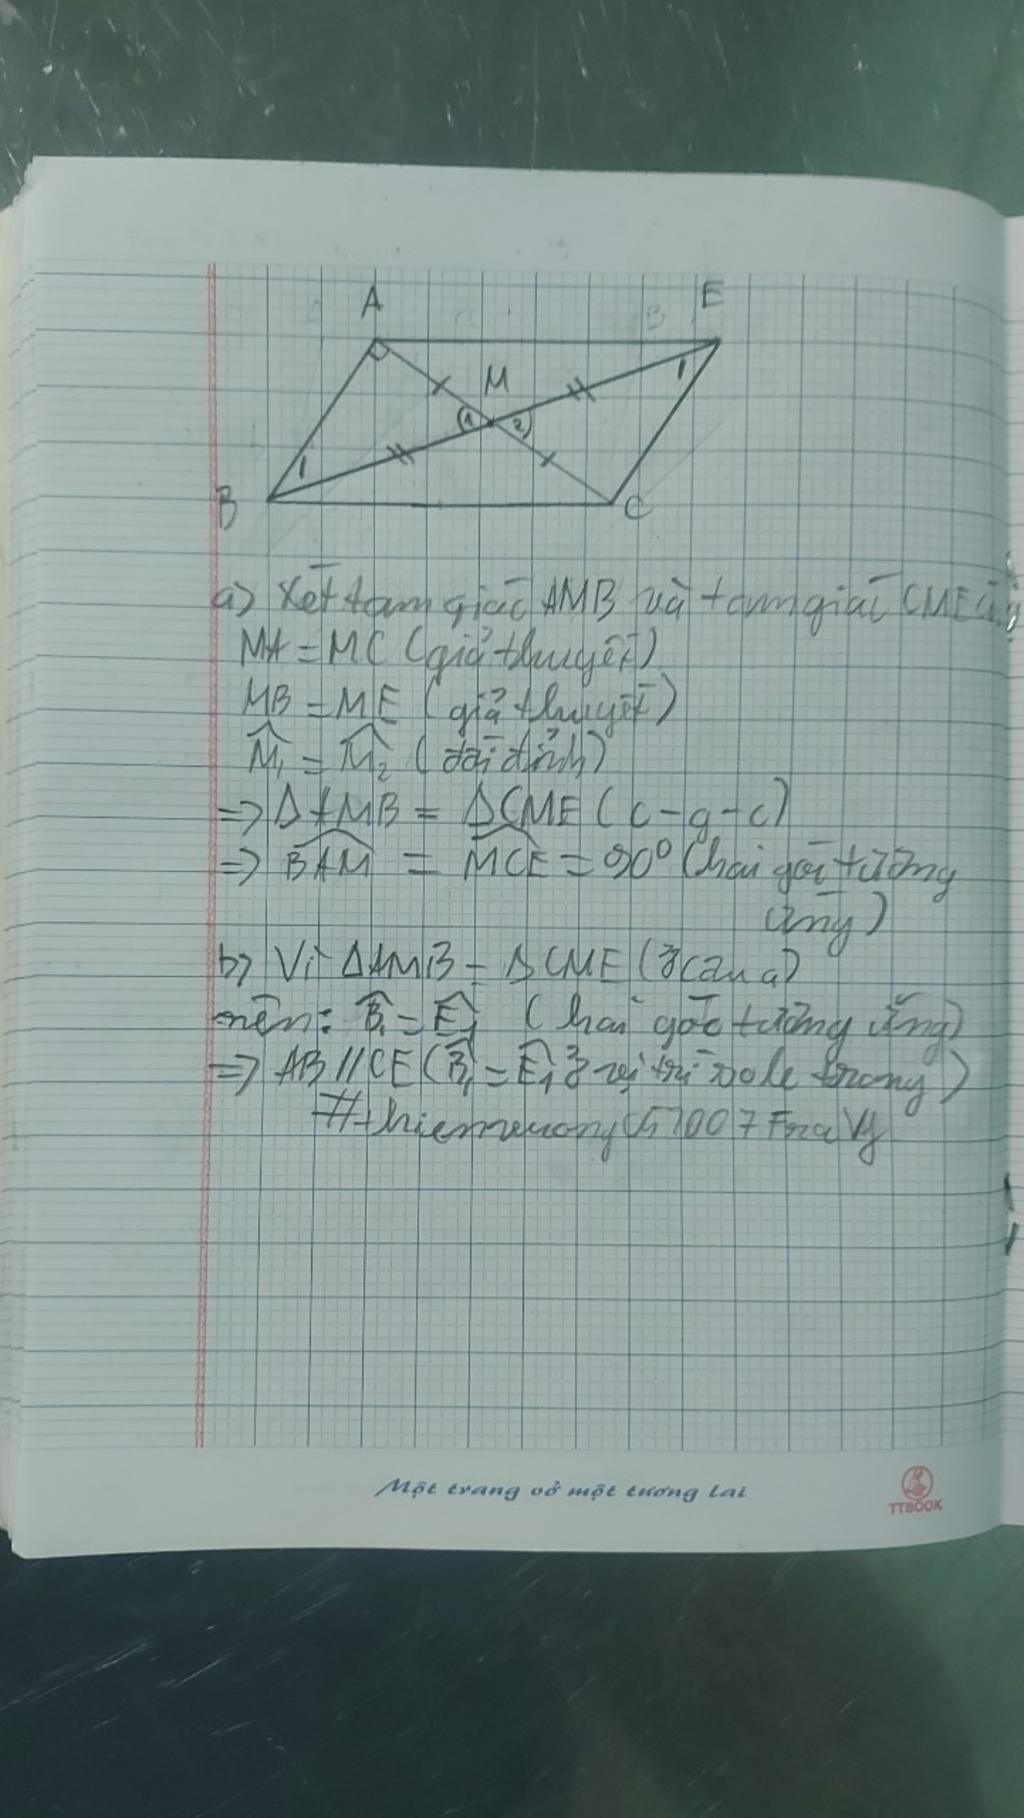 A E
M
1
(1 2)
1
B C
a) Xét tam giác AMB và tam giác CME có
MA = MC (giả thuyết)
MB = ME (giả thuyết)
M̂₁ = M̂₂ (đối đỉnh)
=> Δ AMB = ΔCME (c-g-c)
=> BAM = MCE = 90° (hai góc tương
ứng)
b) Vì ΔAMB = ΔCME (ở câu a)
nên: B̂₁ = Ê₁ (hai góc tương ứng)
=> AB // CE (B̂₁ = Ê₁ ở vị trí so le trong)
Một trang vở một tương lai
TTBOOK